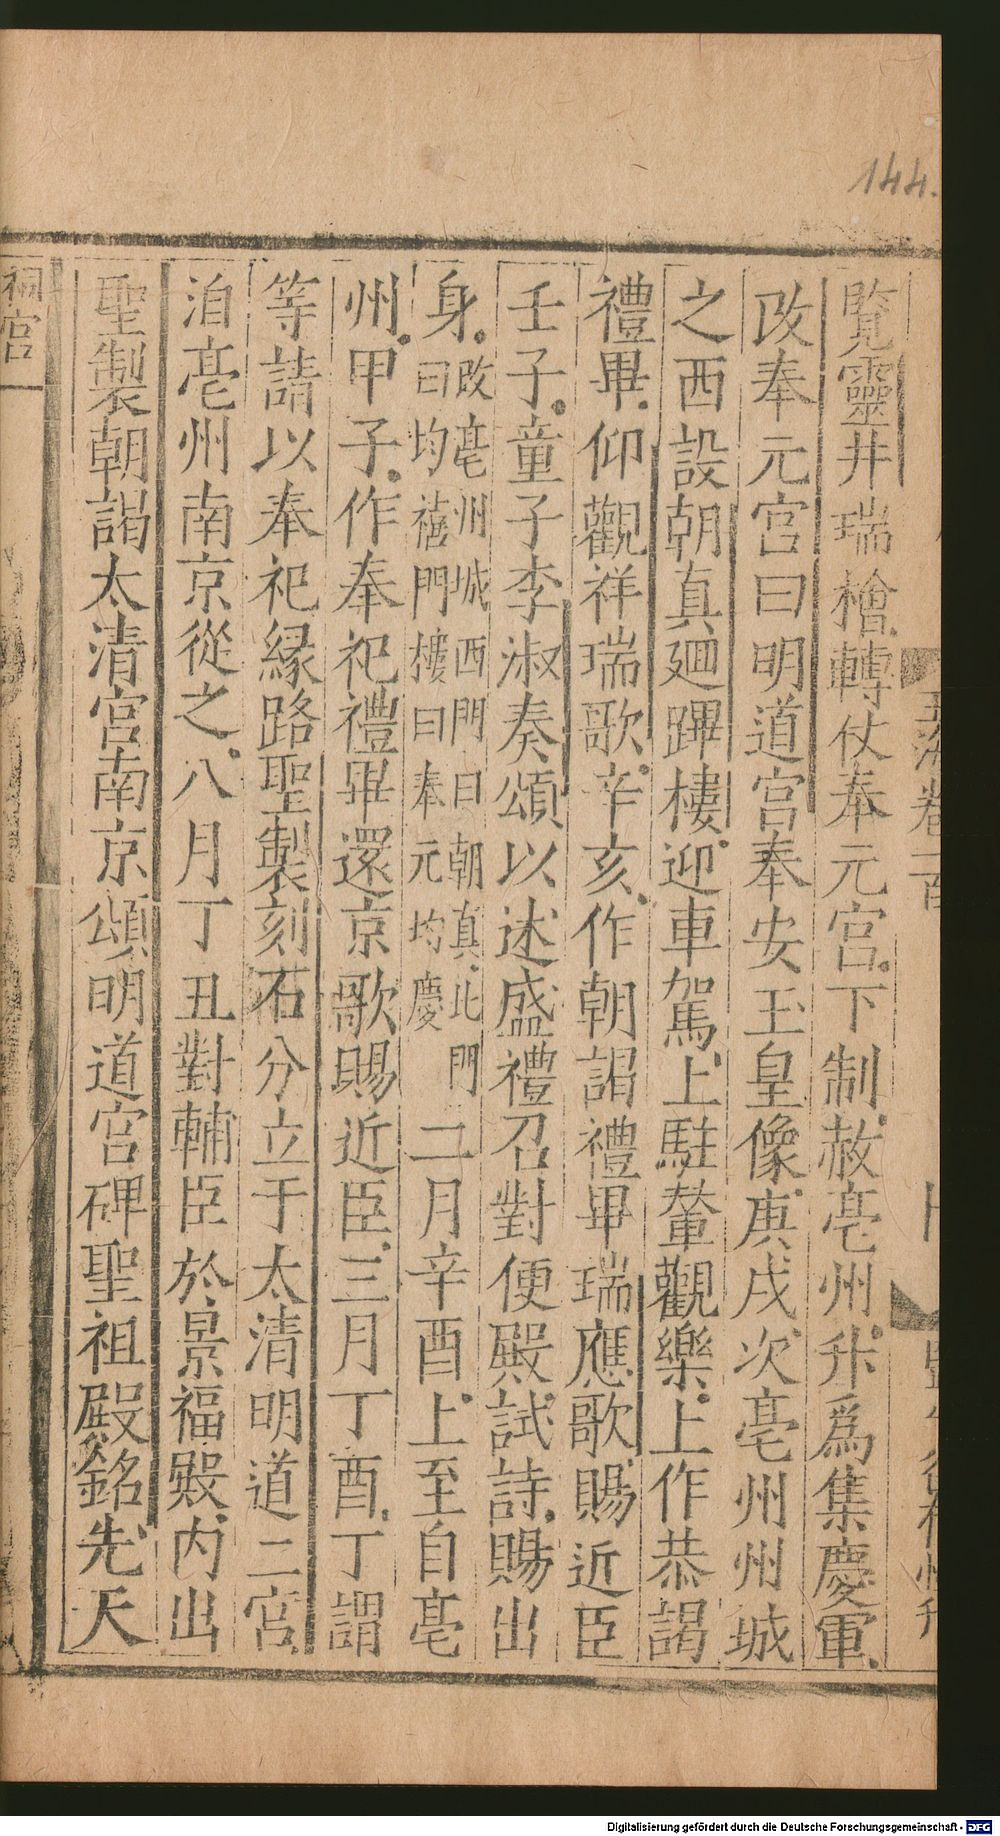 144.
覽靈井瑞檜轉仗奉元宮下制赦亳州升爲集慶軍
改奉元宮曰明道宮奉安玉皇像庚戌次亳州州城
之西設朝真廻蹕樓迎車駕上駐輦觀樂上作恭謁
禮畢仰觀祥瑞歌辛亥作朝謁禮畢瑞應歌賜近臣
壬子童子李淑奏頌以述盛禮召對便殿試詩賜出
身改亳州城西門曰朝真北門曰均禧門樓曰奉元均慶二月辛酉上至自亳
州甲子作奉祀禮畢還京歌賜近臣三月丁酉丁謂
等請以奉祀緣路聖製刻石分立于太清明道二宮
洎亳州南京從之八月丁丑對輔臣於景福殿内出
聖製朝謁太清宮南京頌明道宮碑聖祖殿銘先天
祠宮
Digitalisierung gefördert durch die Deutsche Forschungsgemeinschaft - DFG